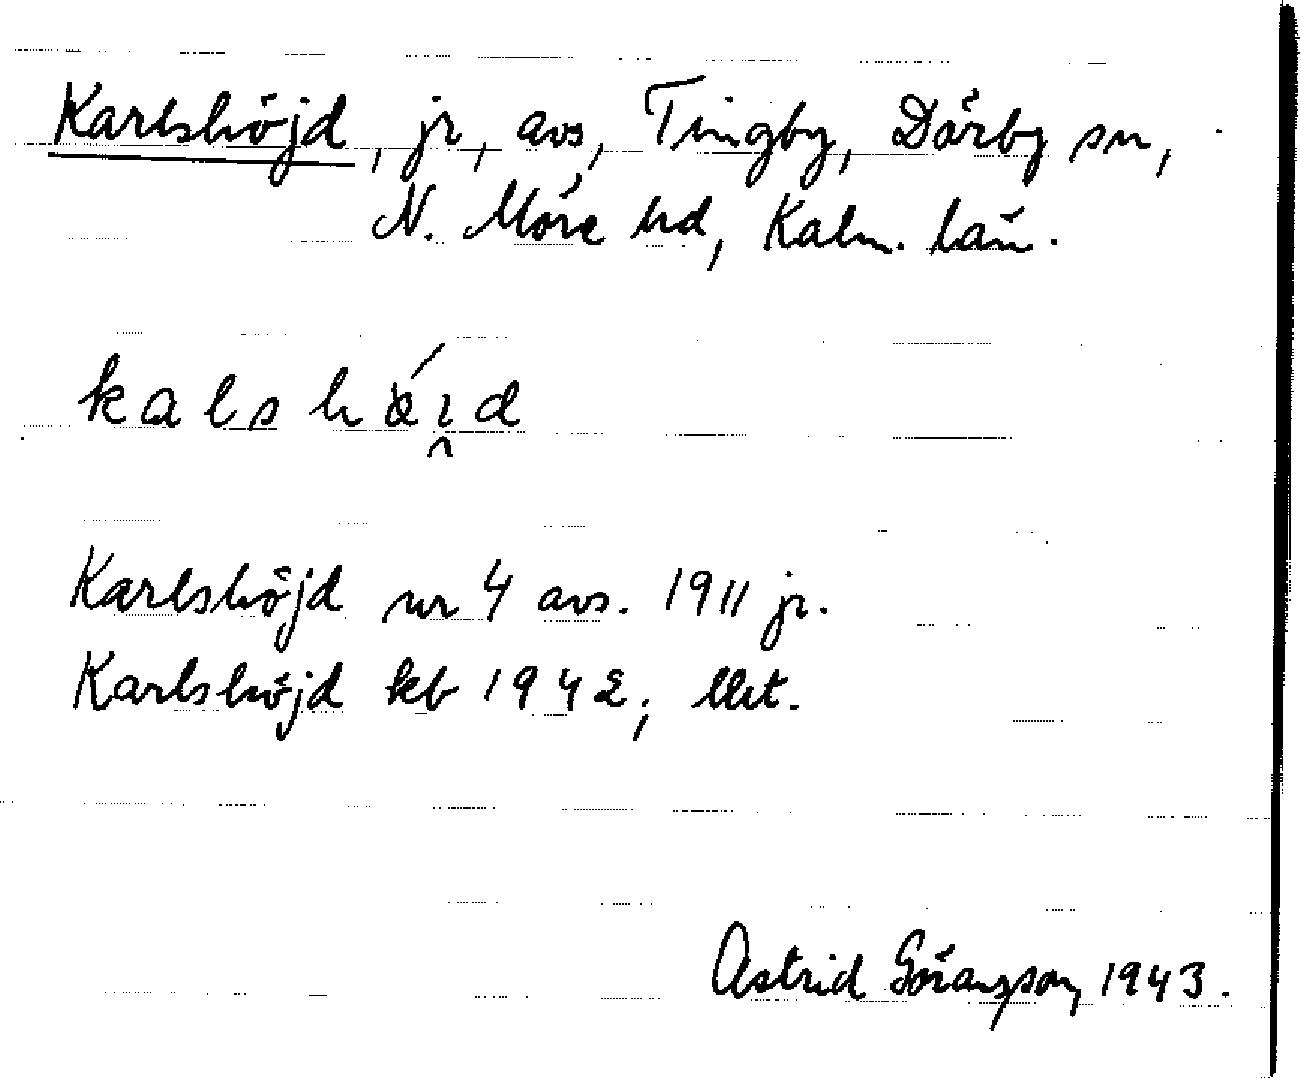 Karlshöjd, jr, avs, Tingby, Dörby sn,
N. Möre hd, Kalm. län.
kalshǿı̯d
Karlshöjd nr 4 avs. 1911 jr.
Karlshöjd kb 1942;
Astrid Göranzson, 1943.